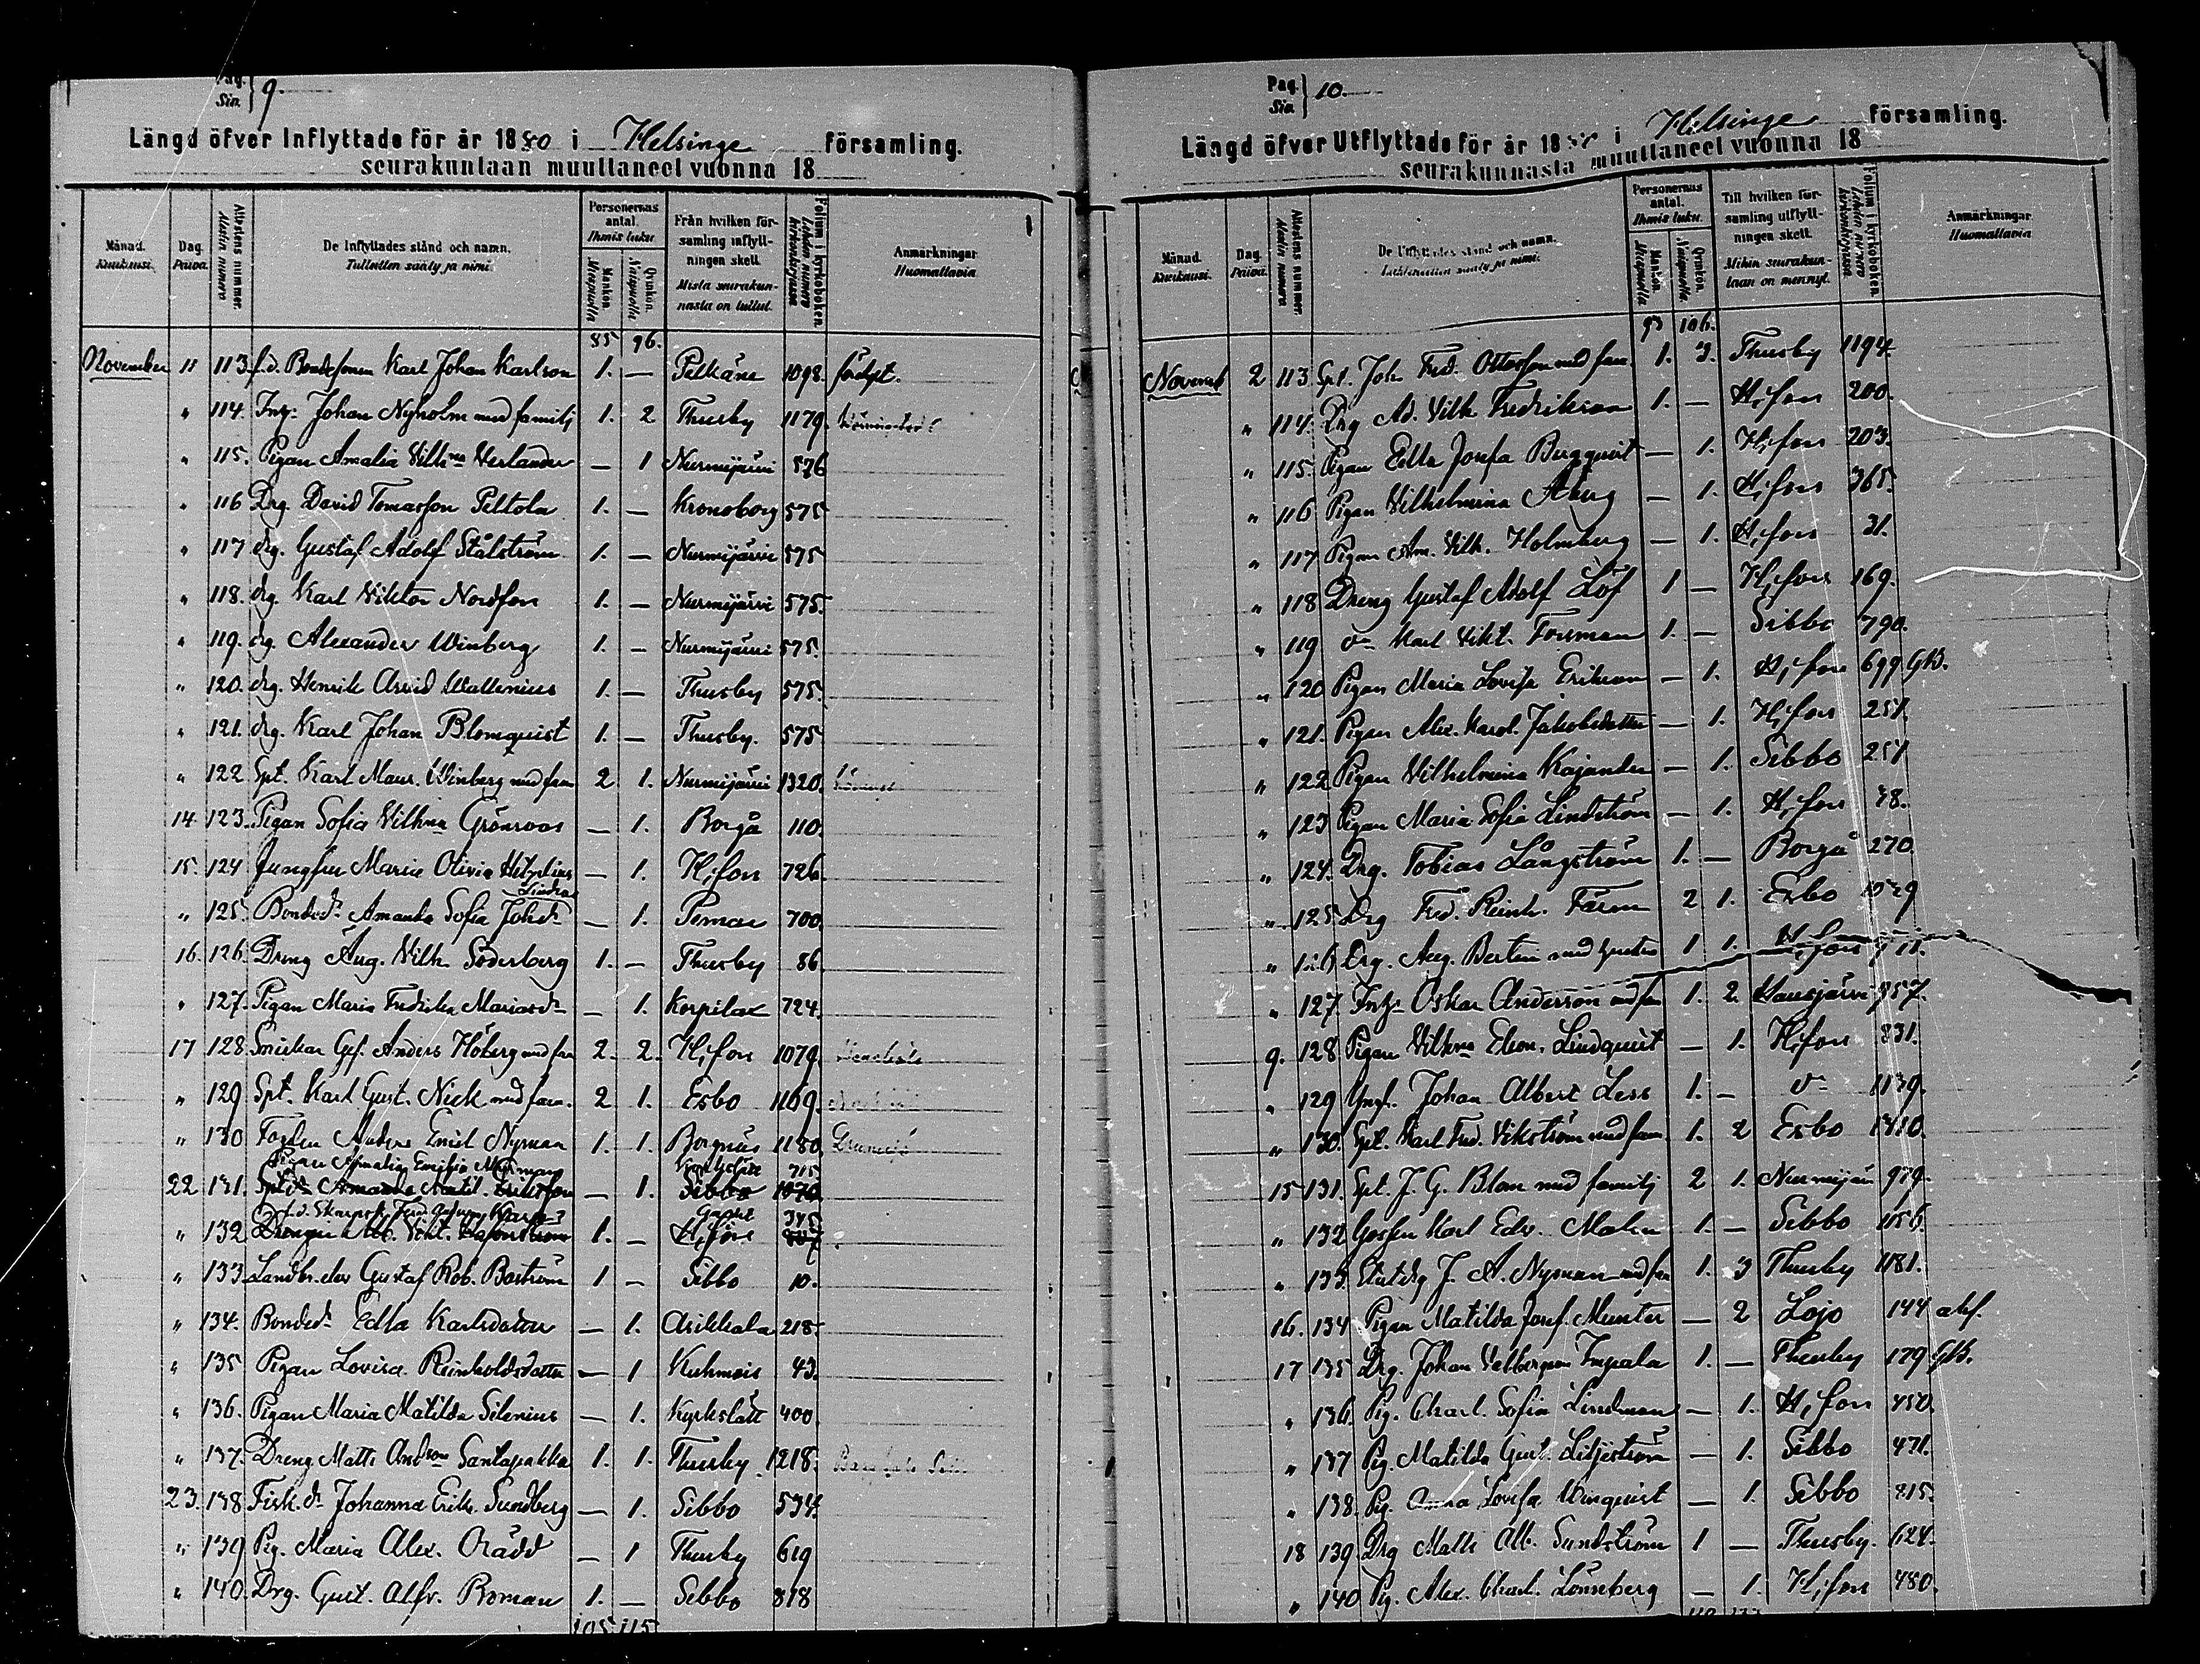 Pag. Sin. } 9.
Längd öfver Inflyttade för år 1880 i Helsinge församling.
seurakuntaan muuttaneet vuonna 18
Månad. Kuukausi.
Dag. Päivä.
Attestens nummer. Atestin numero
De Inflyttades stånd och namn. Tulleitten sääty ja nimi.
Personernas antal. Ihmis luku.
Mankön. Miespuolia
Qvinkön. Naispuolia
Från hvilken församling inflyttningen skett. Mistä seurakunnasta on tullut.
Folium i kyrkoboken. Lehden numero kirkonkirjassa
Anmärkningar. Muistuttavia
85 96.
November 11 113. f.d. Bondesonen Karl Johan Karlson 1. — Pelkäne 1098. födst.
" 114. Inh. Johan Nyholm med familj 1. 2 Thusby 1179.
" 115. Pigan Amalia Vilhna Verlander — 1 Nurmijärvi 576
" 116 Drg. David Tomasson Peltola 1. — Kronoborg 575
" 117 drg. Gustaf Adolf Stålström 1. — Nurmijärvi 575
" 118. drg. Karl Viktor Nordfors 1. — Nurmijärvi 575.
" 119. drg. Alexander Winberg 1. — Nurmijärvi 575.
" 120. drg. Henrik Arvid Wallenius 1. — Thusby 575
" 121. drg. Karl Johan Blomquist 1. — Thusby. 575
" 122 Spt. Karl Maur. Winberg med fam 2 1. Nurmijärvi 1320.
14 123. Pigan Sofia Vilhna Grönroos — 1. Borgå 110.
15. 124 Jungfru Maria Olivia — 1. H;fors 726.
Lindros
" 125. Bonded. Amanda Sofia Johd. — 1. Pernå 700.
16. 126. Dreng Aug. Vilh. Söderberg 1. — Thusby 86
" 127. Pigan Maria Fredrika Mariasdr — 1. Korpilax 724.
17 128. Anders Höberg med fam 2. 2. H;fors 1079.
" 129 Spt. Karl Gust. Nick med fam. 2 1. Esbo 1169.
" 130 Anders Emil Nyman 1. 1. Borgnäs 1180.
Pigan Amalia Emilia Nyman 715
22 131. Amanda Matil. Eriksson — 1. Sibbo 1070.
345
" 132 Drengen Alb. Vikt. 1. — H;fors
" 133. Gustaf Rob. Boström 1 — Sibbo 10.
" 134. Bonded. Edla Karlsdotter — 1. Asikkala 218.
" 135 Pigan Lovisa Reinholdsdotter — 1 Kuhmois 43.
" 136. Pigan Maria Matilda Silenius — 1. Kyrkslätt 400.
" 137. Dreng Matts Andson Santapakka 1. 1. Thusby 1218.
23. 138. Fisk.dr Johanna Erika Sundberg — 1. Sibbo 534.
" 139 Pig. Maria Alex. Orädd — 1 Thusby 619
" 140. Drg. Gust. Alfr. Roman 1. — Sibbo 818
105 115
Pag. Sin. } 10.
Längd öfver Utflyttade för år 18 i Helsinge församling.
seurakunnasta muuttaneet vuonna 18
Månad. Kuukausi.
Dag. Päivä.
Attestens nummer. Atestin numero
De Utflyttades stånd och namn. Lähteneitten sääty ja nimi.
Personernas antal. Ihmis luku.
Mankön. Miespuolia
Qvinkön. Naispuolia
Till hvilken församling utflyttningen skett. Mihin seurakuntaan on mennyt.
Folium i kyrkoboken. Lehden numero kirkonkirjassa
Anmärkningar. Muistuttavia
93 106.
Novemb 2 113 Spt. Joh. Fred. Ottosson med fam. 1. 3. Thusby 1194.
" 114. Drg Ad. Vilh. Fredrikson 1. — H;fors 200.
" 115. Pigan Edla Josefa Bergqvist — 1. H;fors 203.
" 116 Pigan Vilhelmina Åberg — 1. H;fors 365.
" 117 Pigan Am. Vilh. Holmberg — 1. H;fors 31.
" 118 Dreng Gustaf Adolf Löf 1 — H;fors 169.
" 119 dn Karl Vikt. Forsman 1. — Sibbo 790.
" 120 Pigan Maria Lovisa Erikson — 1. H;fors 699 GB.
" 121. Pigan Alex. Karol. Jakobsdotter — 1. H;fors 251.
" 122 Pigan Vilhelmina Kajander — 1. Sibbo 251
" 123 Pigan Maria Sofia Lindström — 1. H;fors 78.
" 124. Drg. Tobias Långström 1. — Borgå 270.
" 125 Drg Fred. Reinh. Färm 2 1. Esbo 1029
" 126. Drg. Aug. Bertin med hustru 1 1. H;fors 711.
" 127. Inh. Oskar Anderson med fam 1. 2. Hausjärvi 957.
9. 128 Pigan Vilhna Eleon. Lindquist — 1. H;fors 331.
" 129 Yngl. Johan Albert Less 1. — dn 1139.
" 130. Spt. Karl Fred. Vikström med fam. 1. 2 Esbo 1310.
15 131. Spt. J. G. Blom med familj 2 1. Nurmijärvi 979.
" 132 Gossen Karl Edv. Malin 1. — Sibbo 1156.
" 133. Statdrg J. A. Nyman med fam 1. 3 Thusby 1181.
16. 134 Pigan Matilda Josef. Munter — 2 Lojo 144
17 135 Drg. Johan Impola 1. — Thusby 179 GB.
" 136. Pig. Charl. Sofia Lindman — 1. H;fors 450.
" 137 Pig. Matilda Gust. Liljeström — 1. Sibbo 471.
" 138. Pig. Anna Lovisa Winquist — 1. Sibbo 815.
18 139 Drg Matts Alb. Sundström 1 — Thusby. 624.
" 140 Pig. Alex. Charl. Lönnberg — 1. H;fors 480.